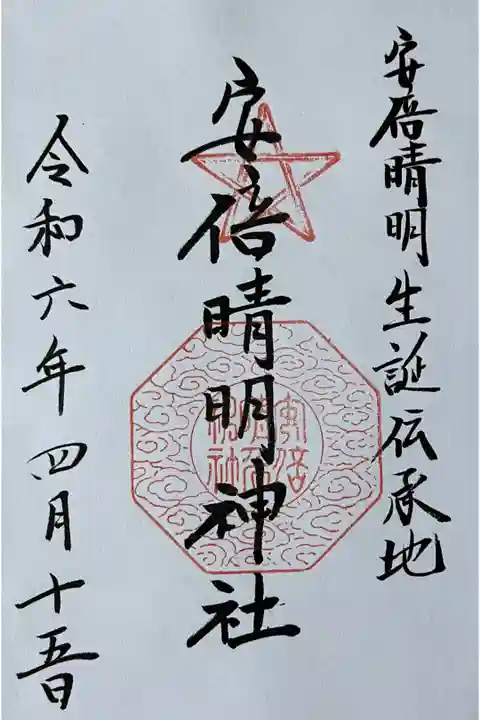 安倍晴明生誕伝承地
安倍晴明神社
令和六年四月十五日